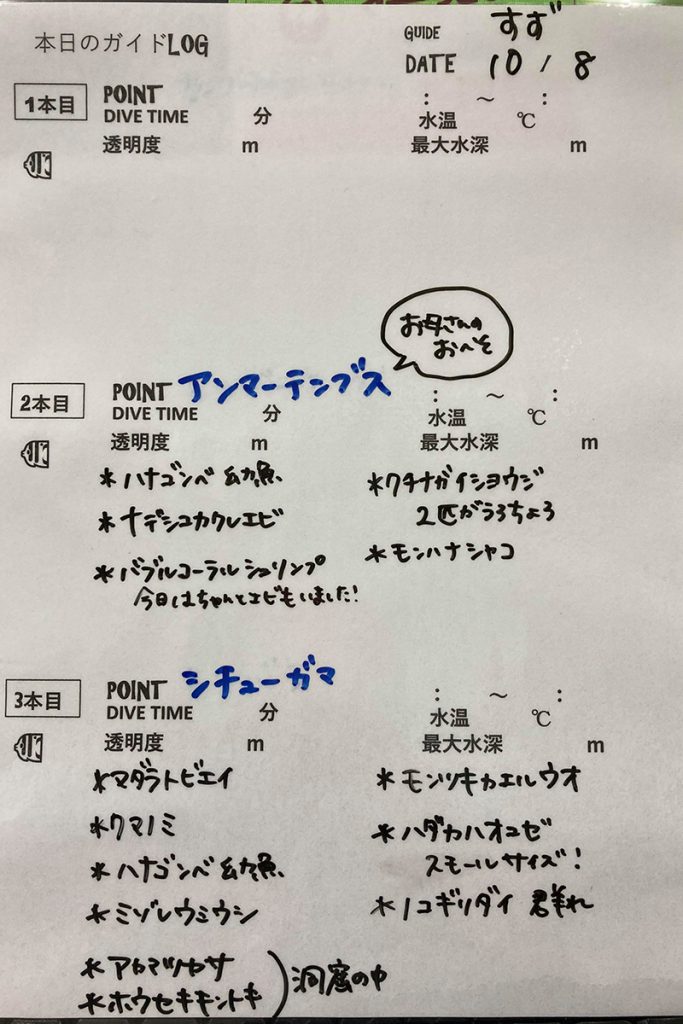 本日のガイドLOG
GUIDE すず
DATE 10 / 8
1本目 POINT : ～ :
DIVE TIME 分 水温 ℃
透明度 m 最大水深 m
お母さんの
おへそ
2本目 POINT アンマーテンブス : ～ :
DIVE TIME 分 水温 ℃
透明度 m 最大水深 m
*ハナゴンベ幼魚
*ナデシコカクレエビ
*バブルコーラルシュリンプ
今日はちゃんとエビもいました!
*クチナガイシヨウジ
2匹がうろちょろ
*モンハナシャコ
3本目 POINT シチューガマ : ～ :
DIVE TIME 分 水温 ℃
透明度 m 最大水深 m
*マダラトビエイ
*クマノミ
*ハナゴンベ幼魚
*ミゾレウミウシ
*アカマツカサ
*ホウセキキントキ
洞窟の中
*モンツキカエルウオ
*ハダカハオコゼ
スモールサイズ!
*ノコギリダイ 群れ